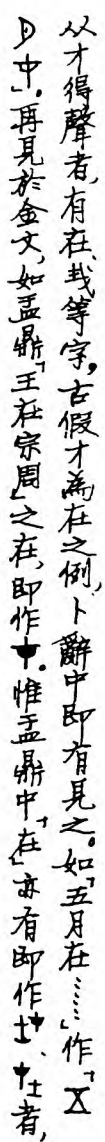 从才得聲者,有在、𢦏等字。古假才為在之例,卜辭中即有見之。如「五月在……」作「𠄡
月中」。再見於金文,如盂鼎「王在宗周」之在,即作。惟盂鼎中「在」亦有即作、者,